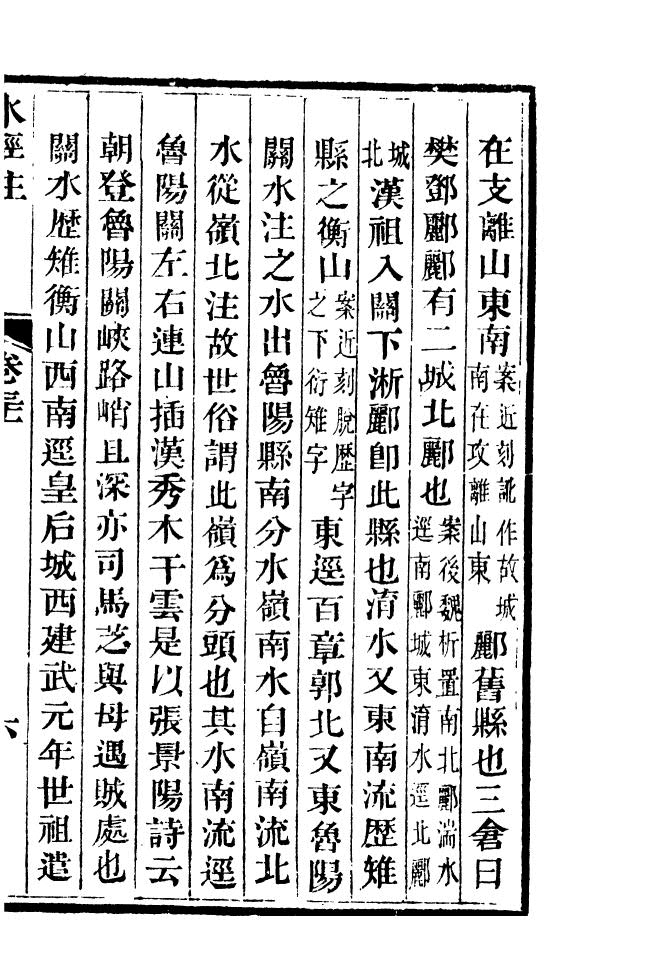 在支離山東南案近刻訛作故城南在攻離山東酈舊縣也三倉曰
樊鄧酈酈有二城北酈也案後魏析置南北酈湍水逕南酈城東淯水逕北酈
城北漢祖入關下淅酈卽此縣也淯水又東南流歴雉
縣之衡山案近刻脫歴字之下衍雉字東逕百章郭北又東魯陽
關水注之水出魯陽縣南分水嶺南水自嶺南流北
水從嶺北注故世俗謂此嶺爲分頭也其水南流逕
魯陽關左右連山插漢秀木干雲是以張景陽詩云
朝登魯陽關峽路峭且深亦司馬芝與母遇賊處也
關水歴雉衡山西南逕皇后城西建武元年世祖遣
水經注
卷三
六